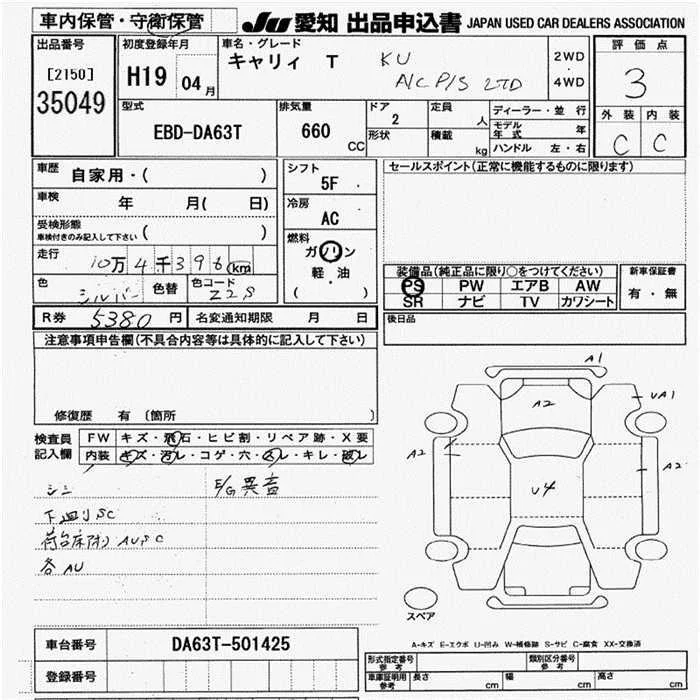 車内保管・守衛保管
JU 愛知 出品申込書 JAPAN USED CAR DEALERS ASSOCIATION
出品番号
[2150]
35049
初度登録年月
H19 04 月
車名・グレード
キャリィ T KU
A/C P/S 2TD
2WD
4WD
評価点
3
外装 内装
C C
型式
EBD-DA63T
排気量
660 CC
ドア
2
形状
定員
人
積載
kg
ディーラー・並行
モデル年式 年
ハンドル 左・右
車歴
自家用・( )
車検
年 月( 日)
受検形態
車検付きのみ記入して下さい ( )
走行
10万4千396 km
色
シルバー
色替
色コード
Z2S
シフト
5F
冷房
AC
燃料
ガソリン
軽・油
( )
セールスポイント(正常に機能するものに限ります)
装備品(純正品に限り○をつけてください)
PS PW エアB AW
SR ナビ TV カワシート
新車保証書
有・無
R券 5380 円 名変通知期限 月 日
後日品
注意事項申告欄(不具合内容等は具体的に記入して下さい)
修復歴 有 〔箇所 〕
検査員記入欄
FW キズ・飛石・ヒビ割・リペア跡・X要
内装 キズ・汚レ・コゲ・穴・スレ・キレ・破レ
シミ
E/G異音
下廻りSC
荷台床アオリAUSC
各AU
A1
A2
UA1
A2
A2
U4
スペア
A-キズ E-エクボ U-凹み W-補修跡 S-サビ C-腐食 XX-交換済
車台番号 DA63T-501425
登録番号
形式指定番号 参考
類別区分番号 参考
車庫証明用 参考
長さ cm 幅 cm 高さ cm